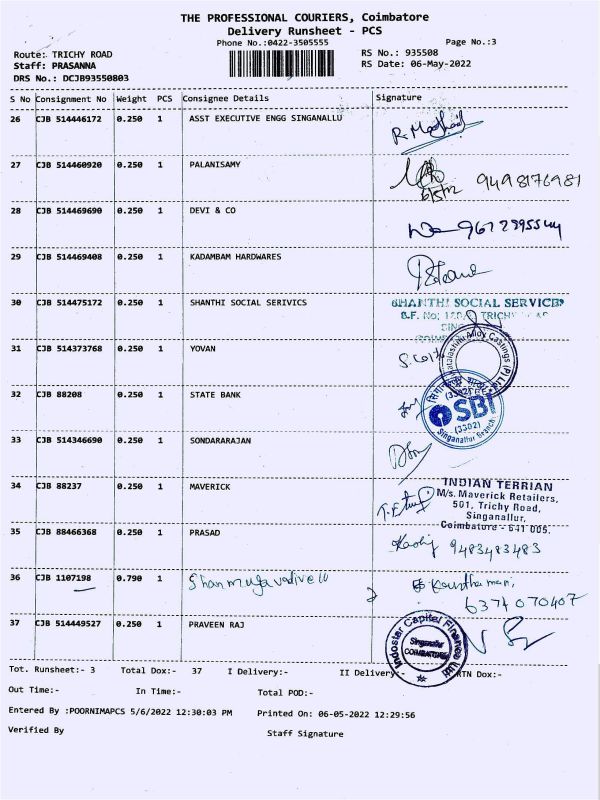 THE PROFESSIONAL COURIERS, Coimbatore
Delivery Runsheet - PCS
Phone No.:0422-3505555
Page No.:3
Route: TRICHY ROAD
RS No.: 935508
Staff: PRASANNA
RS Date: 06-May-2022
DRS No.: DCJB93550803
S No Consignment No Weight PCS Consignee Details Signature
26 CJB 514446172 0.250 1 ASST EXECUTIVE ENGG SINGANALLU
27 CJB 514460920 0.250 1 PALANISAMY 9498176981
28 CJB 514469690 0.250 1 DEVI & CO
29 CJB 514469408 0.250 1 KADAMBAM HARDWARES
30 CJB 514475172 0.250 1 SHANTHI SOCIAL SERIVICS SHANTHI SOCIAL SERVICES
S.F. No; TRICHY
31 CJB 514373768 0.250 1 YOVAN
Alloy Castings (P) Ltd
32 CJB 88208 0.250 1 STATE BANK
SBI
(3302)
Singanallur Branch
33 CJB 514346690 0.250 1 SONDARARAJAN
34 CJB 88237 0.250 1 MAVERICK INDIAN TERRIAN
M/s. Maverick Retailers,
501, Trichy Road,
Singanallur,
Coimbatore - 641 005.
35 CJB 88466368 0.250 1 PRASAD 9483483483
36 CJB 1107198 0.790 1 Shanmugavadivelu
6374070407
37 CJB 514449527 0.250 1 PRAVEEN RAJ
Indostar Capital Finance Ltd
Singanallur
COIMBATORE
Tot. Runsheet:- 3 Total Dox:- 37 I Delivery:- II Delivery:- RTN Dox:-
Out Time:- In Time:- Total POD:-
Entered By :POORNIMAPCS 5/6/2022 12:30:03 PM Printed On: 06-05-2022 12:29:56
Verified By Staff Signature